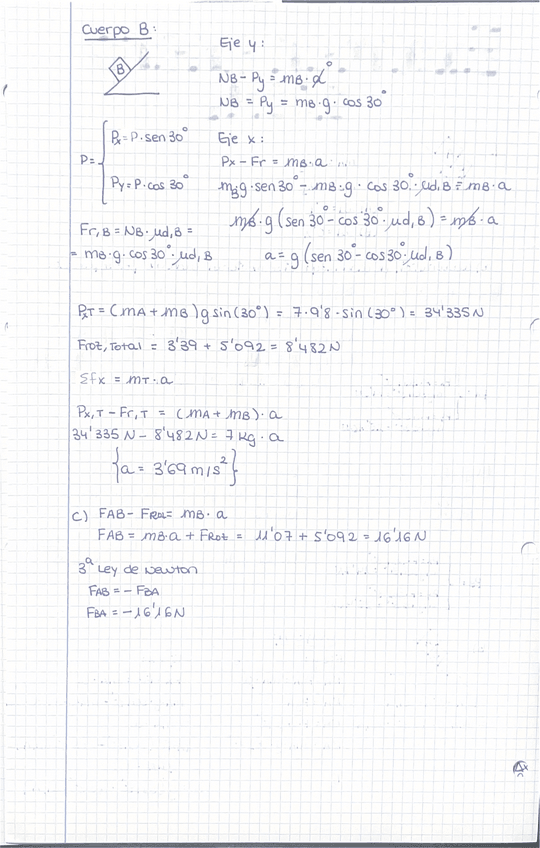 Cuerpo B:
Eje y:
B
NB - Py = mB · a 0
NB = Py = mB · g · cos 30°
P= { Px = P · sen 30°
Py = P · cos 30°
Eje x:
Px - Fr = mB · a
mB g · sen 30° - mB · g · cos 30° · μd, B = mB · a
mB · g (sen 30° - cos 30° · μd, B) = mB · a
Fr, B = NB · μd, B =
= mB · g · cos 30° · μd, B
a = g (sen 30° - cos 30° · μd, B)
PxT = (mA + mB) g sin (30°) = 7 · 9'8 · sin (30°) = 34'335 N
Froz, Total = 3'39 + 5'092 = 8'482 N
Σfx = mT · a
Px, T - Fr, T = (mA + mB) · a
34'335 N - 8'482 N = 7 kg · a
{a = 3'69 m/s²}
c) FAB - FRoz = mB · a
FAB = mB · a + FRoz = 11'07 + 5'092 = 16'16 N
3ª Ley de Newton
FAB = - FBA
FBA = - 16'16 N